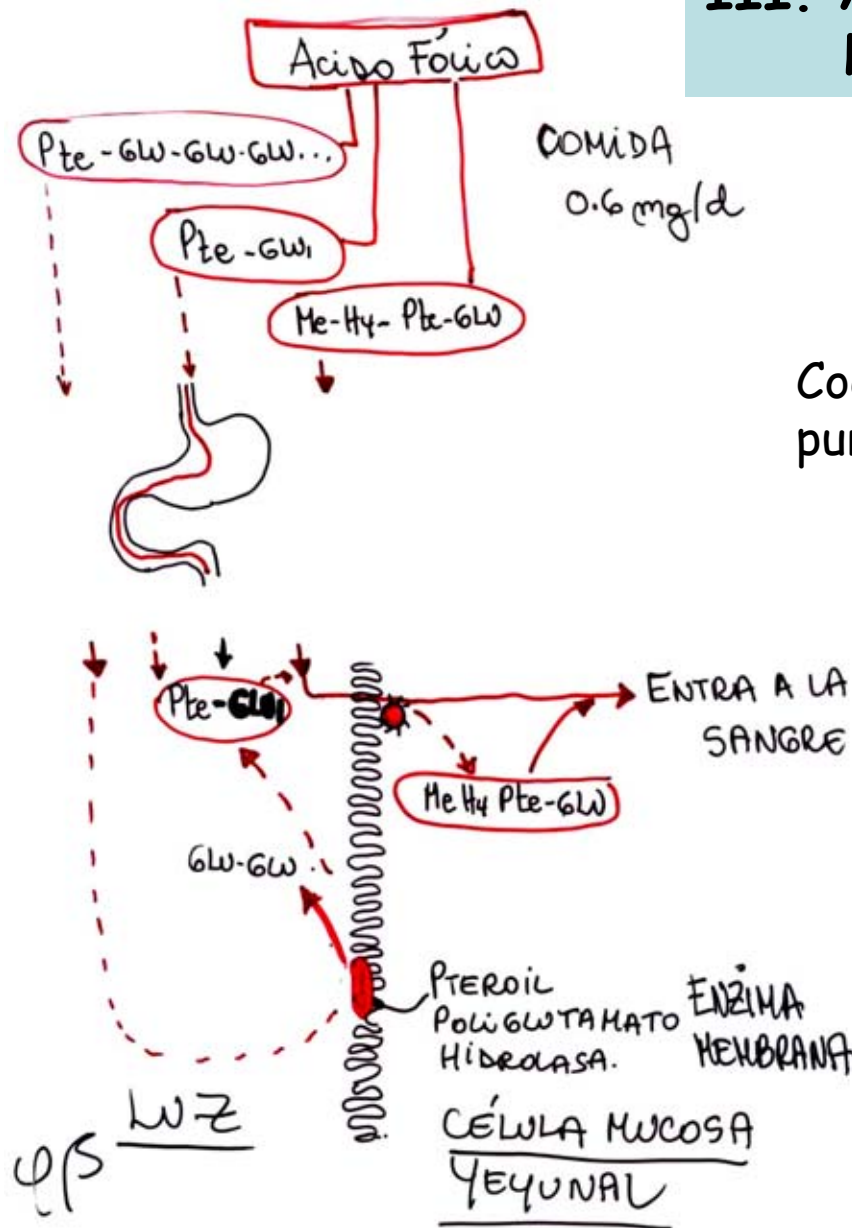 III.
Acido Fólico
Pte-GLU-GLU-GLU...
COMIDA
0.6 mg/d
Pte-GLU1
Me-H4-Pte-GLU
ENTRA A LA
SANGRE
MeH4 Pte-GLU
GLU-GLU
PTEROIL
POLIGLUTAMATO
HIDROLASA.
ENZIMA
MEMBRANA
LUZ
CÉLULA MUCOSA
YEYUNAL